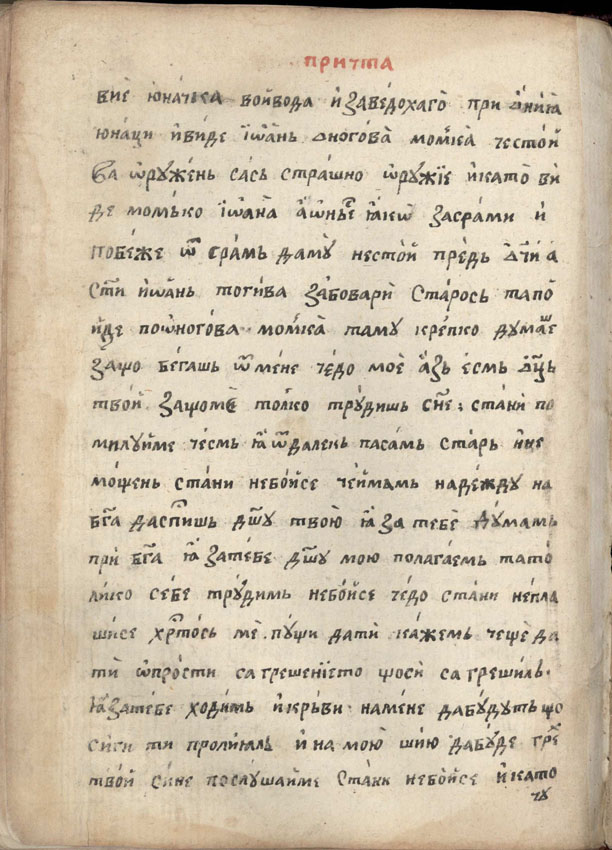 притта
вие юначка войвода и заведохаго при онїа
юнаци и виде їѡань оногова момка честой
ва ѡружень сась страшно ѡружїе и като ви
де момько їѡана аѡнь е ꙗкѡ засрами и
побеже ѿ срамь даму нестой предь оч҃и а
ст҃и иѡань тогива забовари старось та по
йде поѡногова момка таму крепко думаше
защо бегашь ѿ мене чедо мое азь есмь оц҃ь
твой защо ме толко трудишь сн҃е стани по
милуйме чесмь ꙗ ѿдалекь пасамь старь и не
мощень стани небойсе чеймамь надежду на
бг҃а даспишь дш҃у твою ꙗ за тебе думамь
при бг҃а ꙗ затебе дш҃у мою полагаемь тато
лико себе трудимь небойсе чедо стани непла
шисе хр҃тось ме пущи дати кажемь чеще да
ти ѡпрости сагрешението щоси сагрешиль
ꙗ затебе ходимь и крьви намене дабудуть що
сиги ти пролиꙗль и на мою шию дабуде гре
твой сине послушайме стани небойсе и като
ту